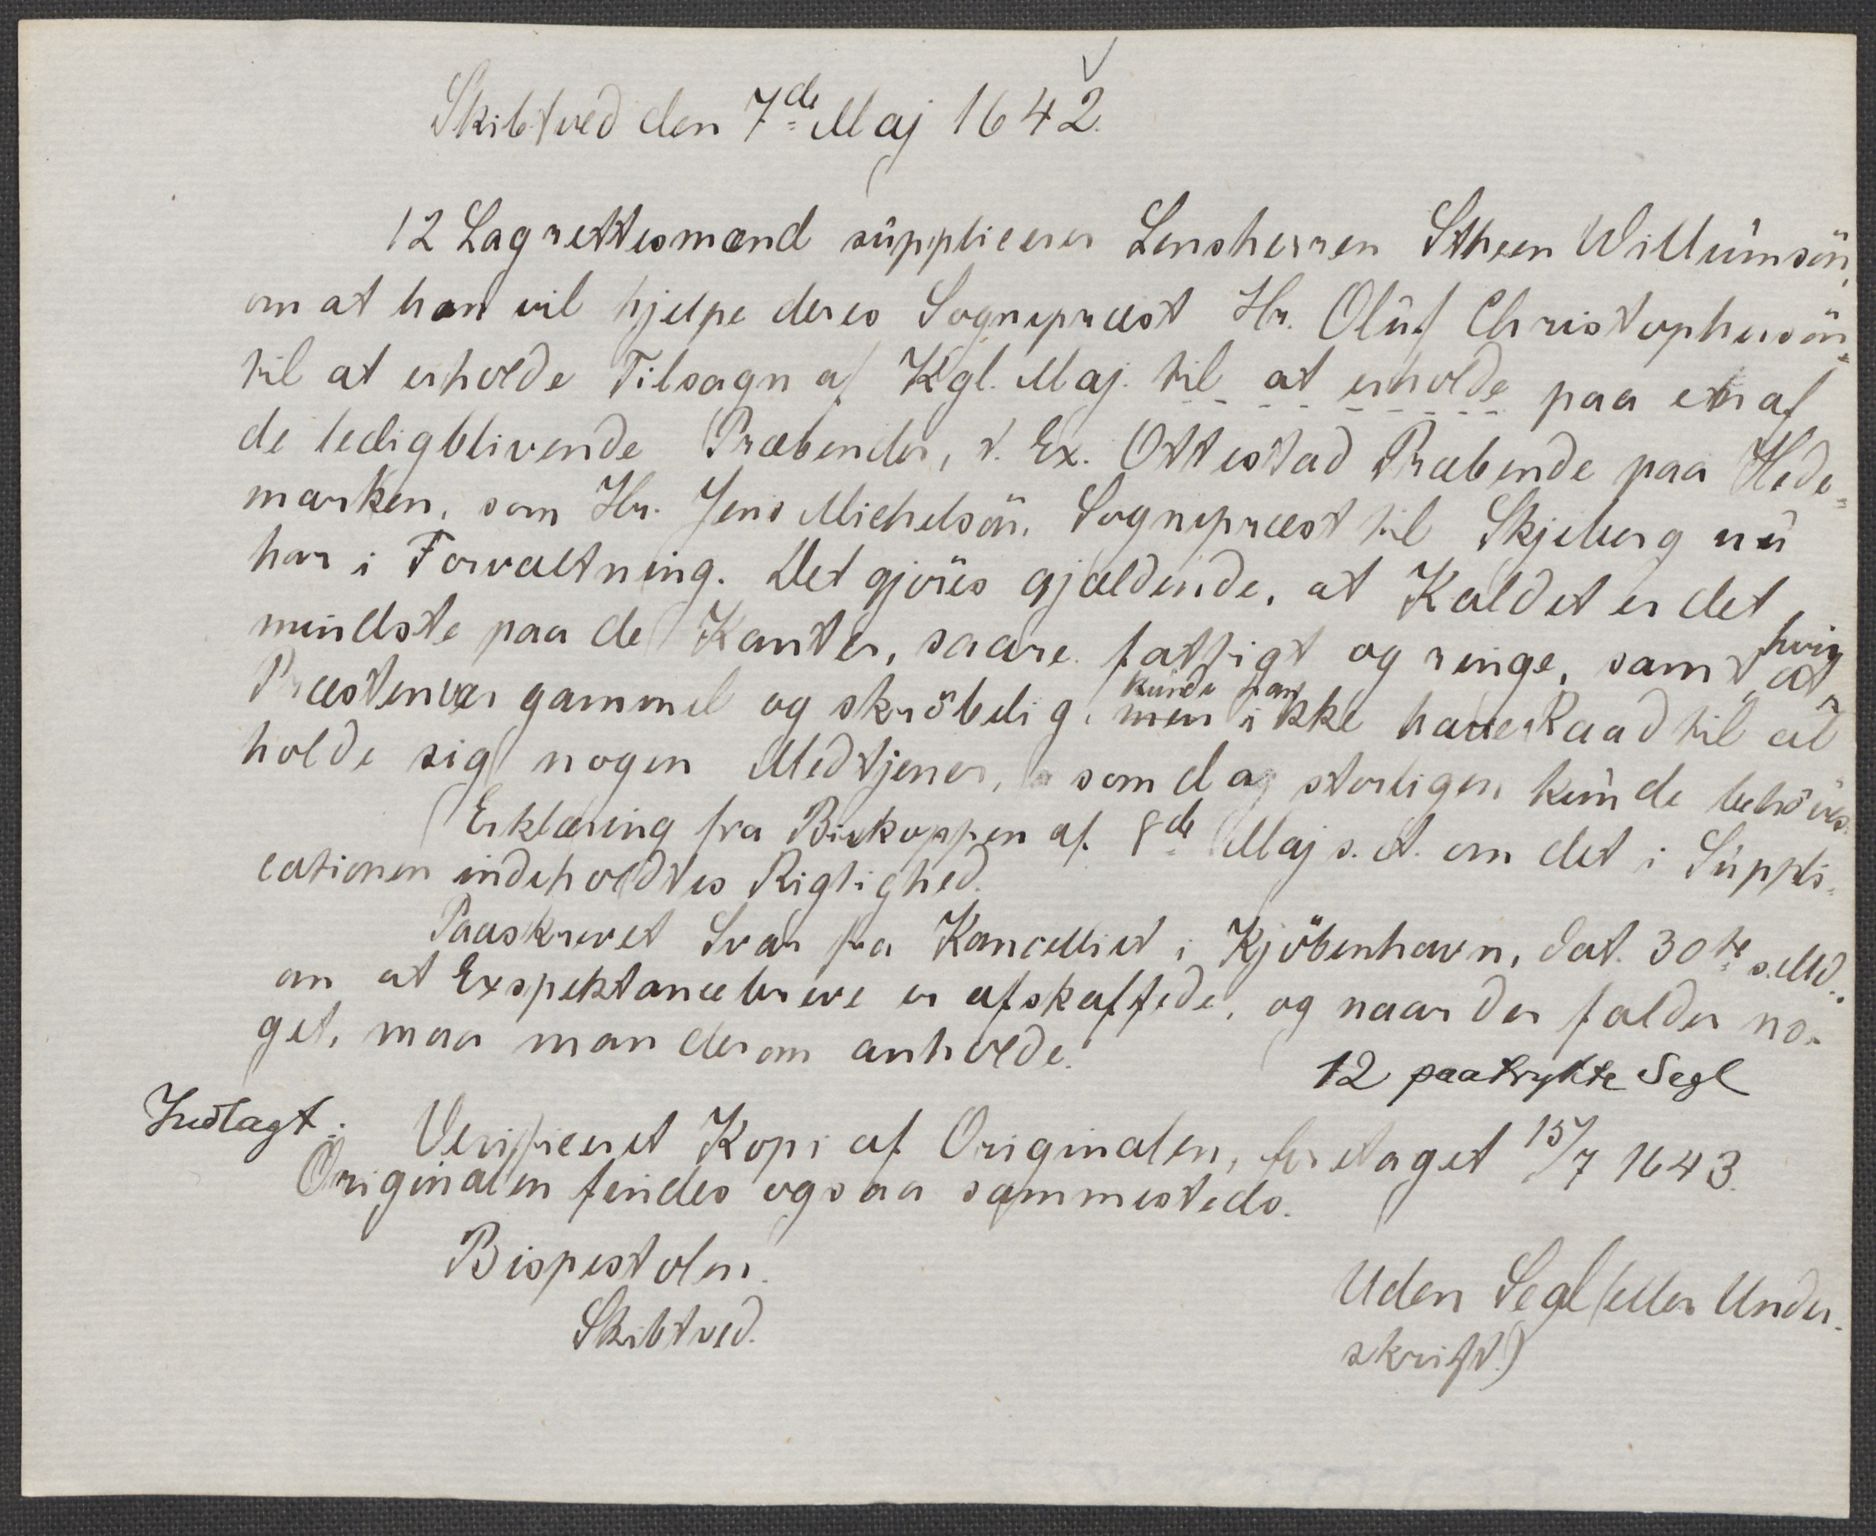 Skibtved den 7de Maj 1642.
12 Lagrettesmænd süpplicerer Lensherren Stheen Willümsön,
om at han vil hjelpe deres Sognepræst Hr. Olüf Christophersön
til at erholde Tilsagn af Kgl. Maj. til at erholde paa et af
de ledigblivende Præbender, t. Ex. Ottestad Præbende paa Hede-
marken, som Hr. Jens Michelsön, Sognepræst til Skjeberg nü
har i Forvaltning. Det gjöres gjældende, at Kaldet er det
mindste paa de Kanter, saare fattigt og ringe, samt hvis
Præsten var gammel og skröbelig, künde han ikke have Raad til at
holde sig nogen Medtjener, som dog storligen künde behöves.
Erklæring fra Biskoppen af 8de Maj s. A. om det i Süppli-
cationen indeholdtes Rigtighed.
Paaskrevet Svar fra Kancelliet i Kjöbenhavn, dat. 30te s. Md.,
om at Exspektancebreve er afskaffede, og naar der falder no-
get, maa man derom anholde.
12 paatrykte Segl
Indlagt: Verificeret Kopi af Originalen, foretaget 15/7 1643.
Originalen findes ogsaa sammesteds.
Bispestolen.
Skibtved.
Uden Segl (eller Under-
skrift)